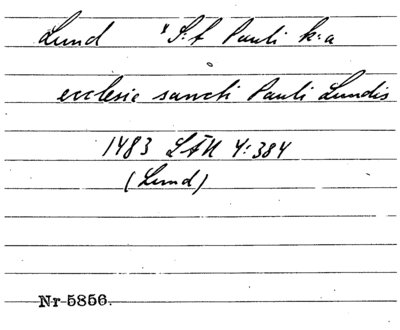 Lund *S:t Pauli k:a
ecclesie sancti Pauli Lundis
1483 LÄU 4:384
(Lund)
Nr 5856.